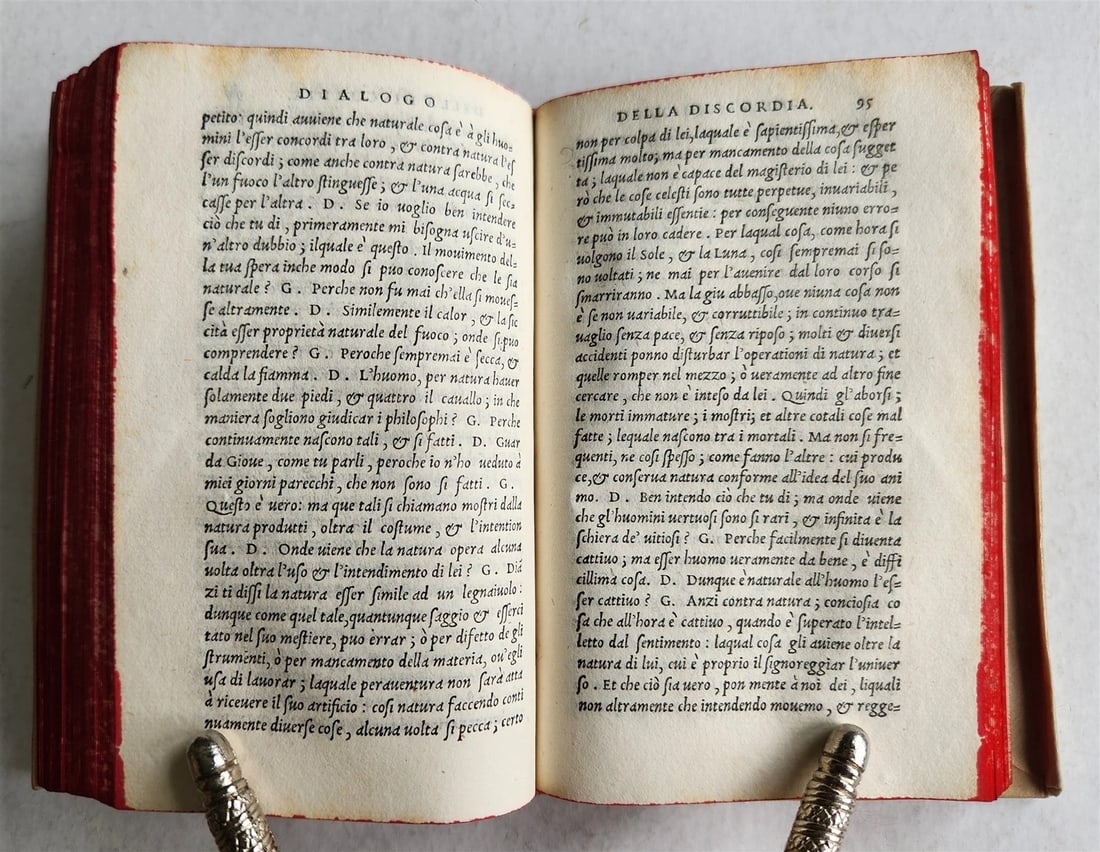 DIALOGO
petito: quindi auuiene che naturale cosa è à gli huo-
mini l'esser concordi tra loro, & contra natura l'es
ser discordi; come anche contra natura sarebbe, che
l'un fuoco l'altro stinguesse; & l'una acqua si sec-
casse per l'altra. D. Se io uoglio ben intendere
ciò che tu di, primeramente mi bisogna uscire d'u-
n'altro dubbio; ilquale è questo. Il mouimento del-
la tua spera inche modo si puo conoscere che le sia
naturale? G. Perche non fu mai ch'ella si moues-
se altramente. D. Similemente il calor, & la sic
cità esser proprietà naturale del fuoco; onde si puo
comprendere? G. Peroche sempremai è secca, &
calda la fiamma. D. L'huomo, per natura hauer
solamente due piedi, & quattro il cauallo; in che
maniera sogliono giudicar i philosophi? G. Perche
continuamente nascono tali, & si fatti. D. Guar
da Gioue, come tu parli, peroche io n'ho ueduto à
miei giorni parecchi, che non sono si fatti. G.
Questo è uero: ma que tali si chiamano mostri dalla
natura produtti, oltra il costume, & l'intention
sua. D. Onde uiene che la natura opera alcuna
uolta oltra l'uso & l'intendimento di lei? G. Dia
zi ti dissi la natura esser simile ad un legnaiuolo:
dunque come quel tale, quantunque saggio & esserci
tato nel suo mestiere, puo errar; ò per difetto de gli
strumenti, ò per mancamento della materia, ou'egli
usa di lauorar; laquale perauentura non sarà atta
à riceuere il suo artificio: cosi natura facendo conti
nuamente diuerse cose, alcuna uolta si pecca; certo
DELLA DISCORDIA. 95
non per colpa di lei, laquale è sapientissima, & esper
tissima molto; ma per mancamento della cosa sugget
ta; laquale non è capace del magisterio di lei: & pe
rò che le cose celesti sono tutte perpetue, inuariabili,
& immutabili essentie: per conseguente niuno erro-
re può in loro cadere. Per laqual cosa, come hora si
uolgono il Sole, & la Luna, cosi sempremai si so-
no uoltati; ne mai per l'auenire dal loro corso si
smarriranno. Ma la giu abbasso, oue niuna cosa non
è se non uariabile, & corruttibile; in continuo tra-
uaglio senza pace, & senza riposo; molti & diuersi
accidenti ponno disturbar l'operationi di natura; et
quelle romper nel mezzo; ò ueramente ad altro fine
cercare, che non è inteso da lei. Quindi gl'aborsi;
le morti immature; i mostri; et altre cotali cose mal
fatte; lequale nascono tra i mortali. Ma non si fre-
quenti, ne cosi spesso; come fanno l'altre: cui produ
ce, & conserua natura conforme all'idea del suo ani
mo. D. Ben intendo ciò che tu di; ma onde uiene
che gl'huomini uertuosi sono si rari, & infinita è la
schiera de' uitiosi? G. Perche facilmente si diuenta
cattiuo; ma esser huomo ueramente da bene, è diffi
cillima cosa. D. Dunque è naturale all'huomo l'es-
ser cattiuo? G. Anzi contra natura; conciosia co
sa che all'hora è cattiuo, quando è superato l'intel-
letto dal sentimento: laqual cosa gli auiene oltre la
natura di lui, cui è proprio il signoreggiar l'uniuer
so. Et che ciò sia uero, pon mente à noi dei, liquali
non altramente che intendendo mouemo, & regge-